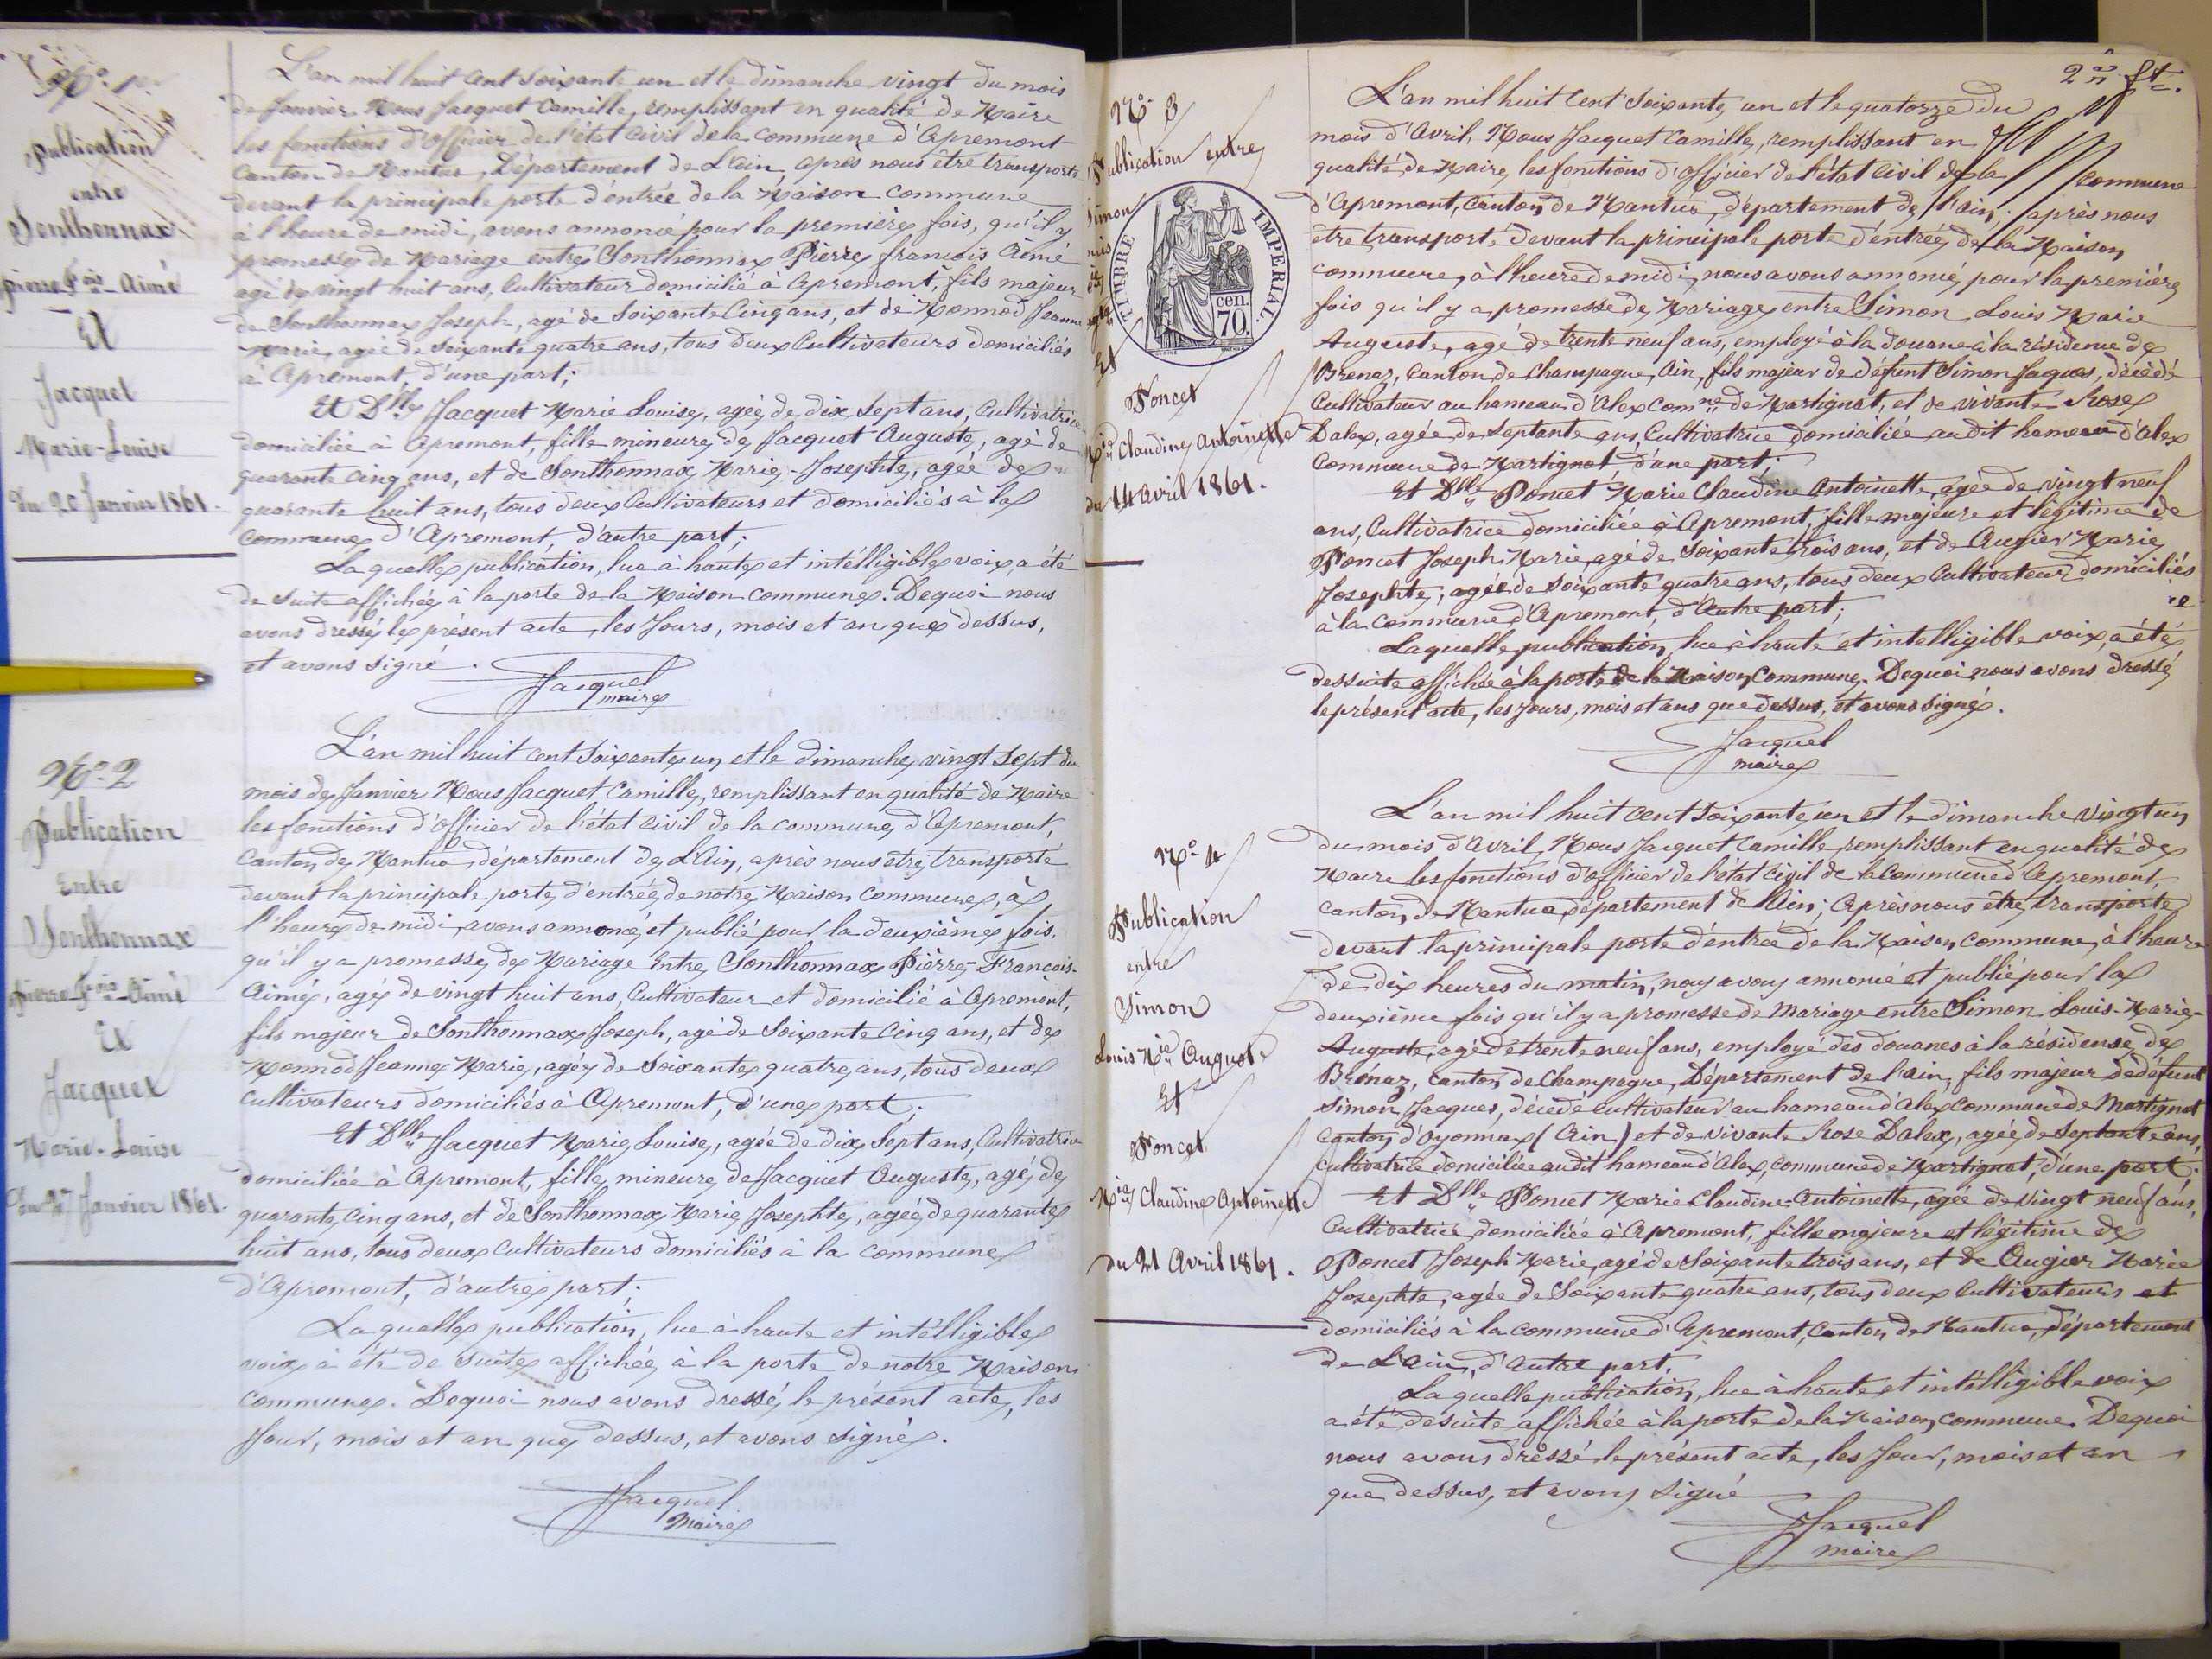 No. 1er
Publication
entre
Sonthonnax
pierre fois-Aimé
Et
Jacquet
Marie-Louise
du 20 Janvier 1861.
L'an mil huit cent soixante un et le dimanche vingt du mois
de Janvier Nous Jacquet Camille, remplissant en qualité de Maire
les fonctions d'officier de l'état civil de la commune d'Apremont
Canton de Nantua, Département de L'ain, après nous être transporté
devant la principale porte d'éntrée de la Maison Commune
à l'heure de midi, avons annoncé pour la première fois, qu'il y
promesse de Mariage entre Sonthonnax Pierre francois Aimé
agé de vingt huit ans, Cultivateur domicilié à Apremont, fils majeur
de Sonthonnax Joseph, agé de Soixante Cinq ans, et de Monnod Jeanne
Marie, agée de soixante quatre ans, tous deux Cultivateurs domiciliés
à Apremont, d'une part;
Et Dlle Jacquet Marie Louise, agée de dix sept ans, Cultivatrice
domiciliée à Apremont, fille mineure de Jacquet Auguste, agé de
quarante cinq ans, et de Sonthonnax Marie-Josephte, agée de
quarante huit ans, tous deux Cultivateurs et domiciliés à la
Commune d'Apremont, d'autre part;
Laquelle publication, lue à haute et intélligible voix, a été
de suite affichée à la porte de la Maison Commune. Dequoi nous
avons dressé le présent acte, les Jours, mois et an que dessus,
et avons signé.
Jacquet
maire
No. 2
Publication
Entre
Sonthonnax
pierre fois-Aimé
Et
Jacquet
Marie-Louise
du 27 Janvier 1861.
L'an mil huit cent soixante un et le dimanche vingt sept du
mois de Janvier Nous Jacquet Camille, remplissant en qualité de Maire
les fonctions d'officier de l'état civil de la commune d'Apremont,
Canton de Nantua, département de L'Ain, après nous être transporté
devant la principale porte d'éntrée de notre Maison commune, à
l'heure de midi, avons annoncé et publié pour la deuxième fois,
qu'il y a promesse de Mariage Entre Sonthonnax Pierre-François-
Aimé, agé de vingt huit ans, Cultivateur et domicilié à Apremont,
fils majeur de Sonthonnax Joseph, agé de Soixante Cinq ans, et de
Monnod Jeanne Marie, agée de Soixante quatre ans, tous deux
cultivateurs domiciliés à Apremont, d'une part.
Et Dlle Jacquet Marie Louise, agée de dix Sept ans, Cultivatrice
domiciliée à Apremont, fille mineure de Jacquet Auguste, agé de
quarante cinq ans, et de Sonthonnax Marie Josephte, agée de quarante
huit ans, tous deux cultivateurs domiciliés à la commune
d'Apremont, d'autre part;
La quelle publication, lue à haute et intélligible
voix à été de suite affichée à la porte de notre Maison
commune. Dequoi nous avons dressé le présent acte, les
Jour, mois et an que dessus, et avons signé.
Jacquet
Maire
No 3
Publication entre
Simon
TIMBRE IMPERIAL.
cen.
70.
Et
Poncet
Mie Claudine Antoinette
du 14 Avril 1861.
2e ft.
L'an mil huit Cent Soixante un et le quatorze du
mois d'Avril, Nous Jacquet Camille, remplissant en
qualité de Maire, les fonctions d'officier de l'état Civil de la Commune
d'Apremont, Canton de Nantua, département de l'ain, après nous
être transporté devant la principale porte d'entrée de la Maison
commune, à l'heure de midi, nous avons annoncé pour la première
fois qu'il y a promesse de Mariage entre Simon Louis Marie
Auguste, agé de trente neuf ans, employé à la douane à la résidence de
Brenaz, Canton de Champagne, Ain, fils majeur de défunt Simon Jaques, décédé
Cultivateur au hameau d'Alex Comne de Martignat, et de vivante Rose
Dalex, agée de septante ans, Cultivatrice domiciliée audit hameau d'Alex
Commune de Martignat, d'une part;
Et Dlle Poncet Marie Claudine Antoinette, agée de vingt neuf
ans, Cultivatrice domiciliée à Apremont, fille majeure et légitime de
Poncet Joseph Marie, agé de Soixante trois ans, et de Augier Marie
Josephte, agée de soixante quatre ans, tous deux Cultivateur domiciliés
à la Commune d'Apremont, d'Autre part;
Laquelle publication, lue à haute et intelligible voix, a été
dessuite affichée à la porte de la Maison Commune. Dequoi nous avons dressé
le présent acte, les Jours, mois et ans que dessus, et avons signé.
Jacquet
maire
No 4
Publication
entre
Simon
Louis Mie Auguste
Et
Poncet
Mie Claudine Antoinette
du 21 Avril 1861.
L'an mil huit cent soixante un et le dimanche Vingt un
du mois d'Avril, Nous Jacquet Camille remplissant en qualité de
Maire les fonctions d'officier de l'état Civil de la Commune d'Apremont,
canton de Nantua, département de l'Ain; Après nous être transporté
devant la principale porte d'entrée de la Maison Commune, à l'heure
de dix heures du matin, nous avons annoncé et publié pour la
deuxième fois qu'il y a promesse de Mariage entre Simon Louis-Marie-
Auguste, agé de trente neuf ans, employé des douanes à la résidense de
Brénaz, canton de Champagne, Département de l'ain, fils majeur de défunt
Simon Jacques, décédé Cultivateur au hameau d'Alex commune de Martignat
canton d'Oyonnax (Ain) et de vivante Rose Dalex, agée de septante ans,
cultivatrice domiciliée audit hameau d'Alex, commune de Martignat, d'une part;
Et Dlle Poncet Marie-Claudine-Antoinette, agée de vingt neuf ans,
Cultivatrice domiciliée à Apremont, fille majeure et légitime de
Poncet Joseph Marie, agé de Soixante trois ans, et de Augier Marie
Josephte, agée de Soixante quatre ans, tous deux Cultivateurs et
domiciliés à la commune d'Apremont, Canton de Nantua, département
de L'Ain, d'Autre part.
La quelle publication, lue à haute et intélligible voix
a été de suite affichée à la porte de la Maison commune. Dequoi
nous avons dréssé le présent acte, les Jour, mois et an
que dessus, et avons signé
Jacquet
maire